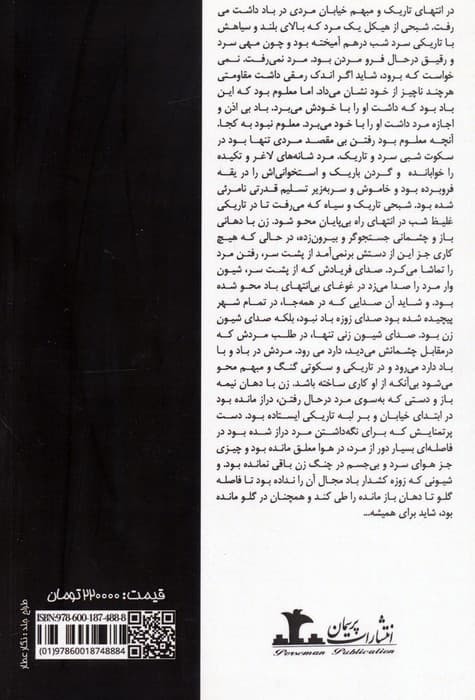 در انتهای تاریک و مبهم خیابان مردی در باد داشت می
رفت. شبحی از هیکل یک مرد که بالای بلند و سیاهش
با تاریکی سرد شب درهم آمیخته بود و چون مهی سرد
و رقیق درحال فرو مردن بود. مرد نمی‌رفت. نمی
خواست که برود، شاید اگر اندک رمقی داشت مقاومتی
هرچند ناچیز از خود نشان می‌داد. اما معلوم بود که این
باد بود که داشت او را با خودش می‌برد. باد بی اذن و
اجازه مرد داشت او را با خود می‌برد. معلوم نبود به کجا.
آنچه معلوم بود رفتن بی مقصد مردی تنها بود در
سکوت شبی سرد و تاریک. مرد شانه‌های لاغر و تکیده
را خوابانده و گردن باریک و استخوانی‌اش را در یقه
فروبرده بود و خاموش و سربه‌زیر تسلیم قدرتی نامرئی
شده بود. شبحی تاریک و سیاه که می‌رفت تا در تاریکی
غلیظ شب در انتهای راه بی‌پایان محو شود. زن با دهانی
باز و چشمانی جستجوگر و بیرون‌زده، در حالی که هیچ
کاری جز این از دستش برنمی‌آمد از پشت سر، رفتن مرد
را تماشا می‌کرد. صدای فریادش که از پشت سر، شیون
وار مرد را صدا می‌زد در غوغای بی‌انتهای باد محو شده
بود. و شاید آن صدایی که در همه‌جا، در تمام شهر
پیچیده شده بود صدای زوزه باد نبود، بلکه صدای شیون
زن بود. صدای شیون زنی تنها، در طلب مردش که
درمقابل چشمانش می‌دید، دارد می رود. مردش در باد و با
باد دارد می‌رود و در تاریکی و سکوتی گنگ و مبهم محو
می‌شود بی‌آنکه از او کاری ساخته باشد. زن با دهان نیمه
باز و دستی که به‌سوی مرد درحال رفتن، دراز مانده بود
در ابتدای خیابان و بر لبه تاریکی ایستاده بود. دست
پرتمنایش که برای نگه‌داشتن مرد دراز شده بود در
فاصله‌ای بسیار دور از مرد، در هوا معلق مانده بود و چیزی
جز هوای سرد و بی‌جسم در چنگ زن باقی نمانده بود. و
شیونی که زوزه کشدار باد مجال آن را نداده بود تا فاصله
گلو تا دهان باز مانده را طی کند و همچنان در گلو مانده
بود، شاید برای همیشه...
قیمت: ۲۲۰۰۰۰ تومان
ISBN: 978-600-187-488-8
(01)97860018748884
طراح جلد: نگار عطار
انتشارات پرسمان
Porseman Publication